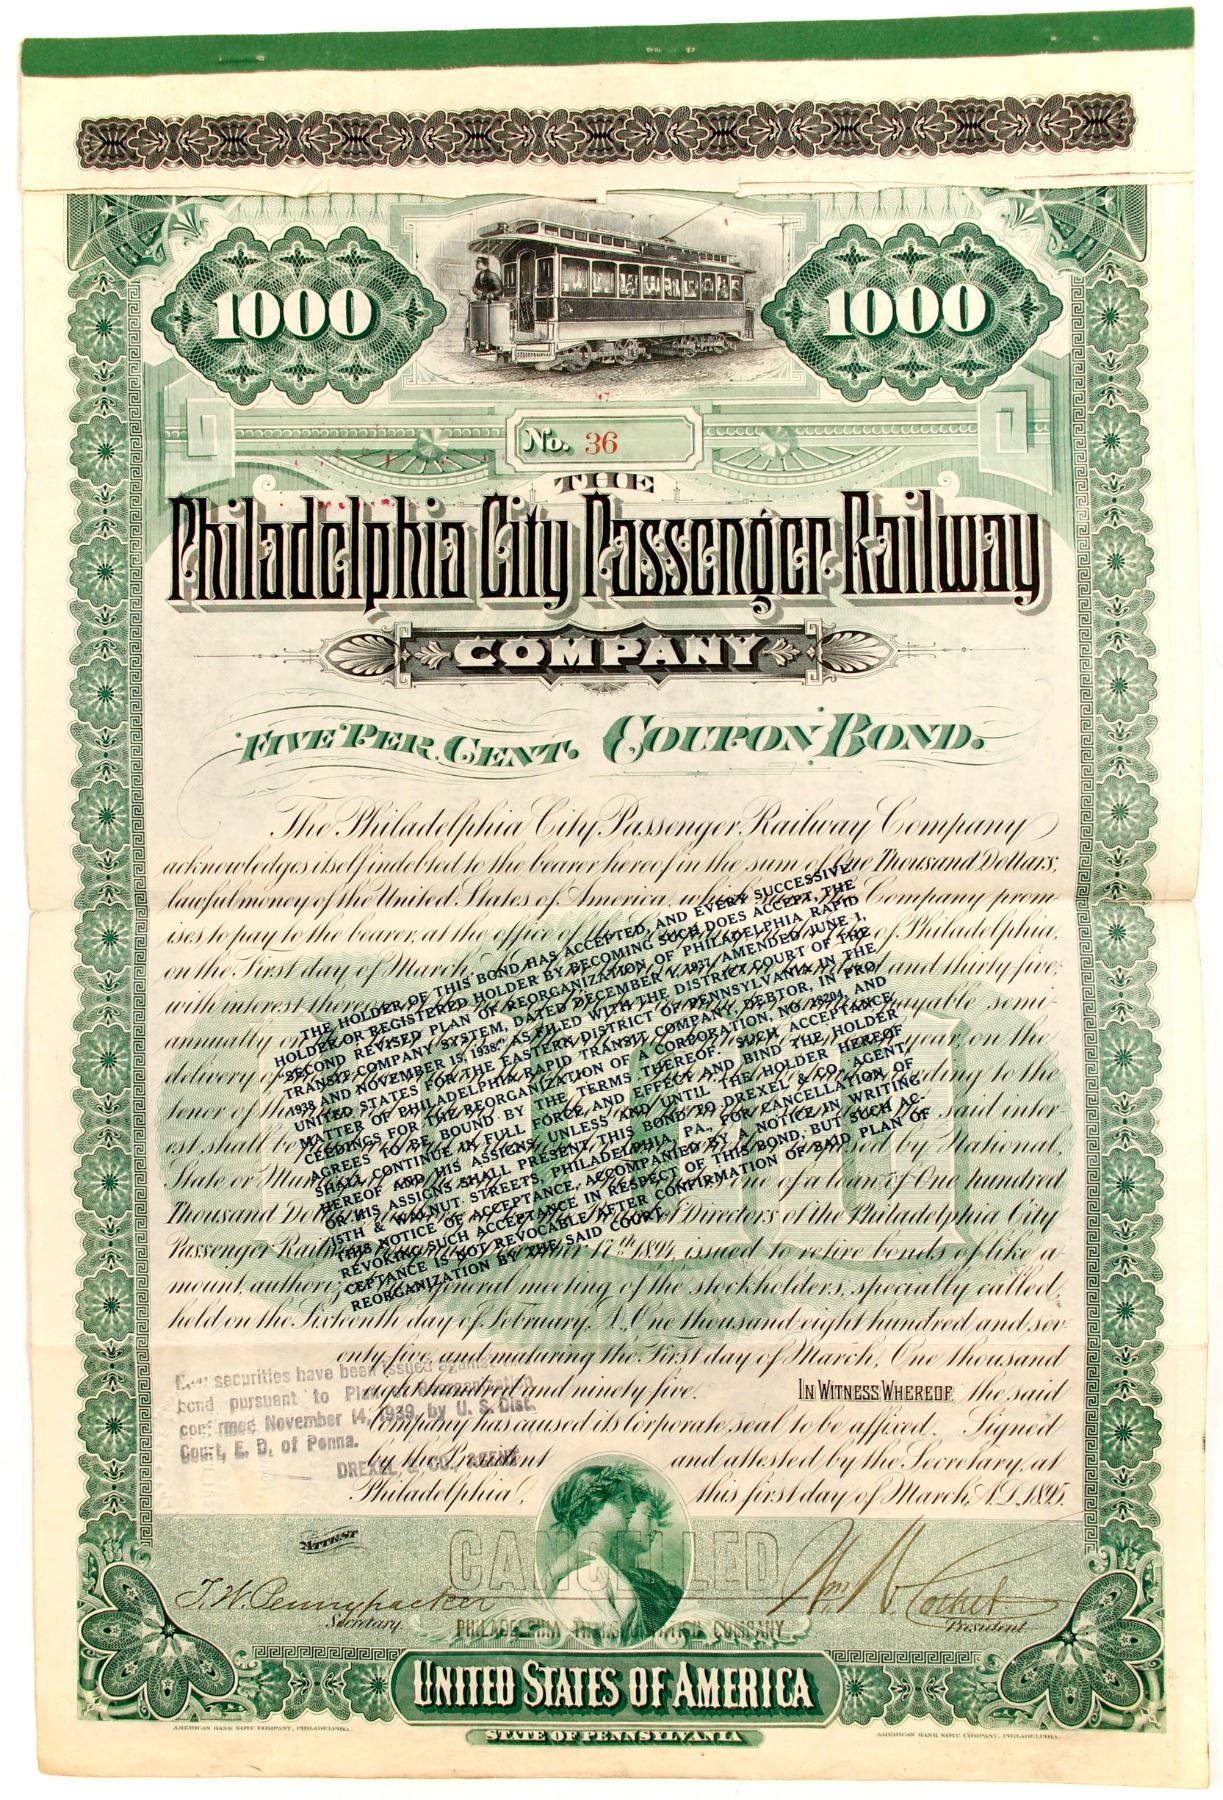 1000
1000
No. 36
THE
Philadelphia City Passenger Railway
COMPANY
FIVE PER CENT. COUPON BOND.
The Philadelphia City Passenger Railway Company
acknowledges itself indebted to the bearer hereof in the sum of One Thousand Dollars,
lawful money of the United States of America, which Company prom-
ises to pay to the bearer, at the office of the of Philadelphia,
on the First day of March, and thirty five,
with interest thereon payable semi-
annually on year, on the
delivery of according to the
tenor of th said inter-
est shall be by National,
State or Mun one of a loan of One hundred
Thousand Dol of Directors of the Philadelphia City
Passenger Railway 17th 1894, issued to retire bonds of like a-
mount, authorized general meeting of the stockholders, specially called,
held on the Sixteenth day of February, A. One thousand eight hundred and sev-
enty-five, and maturing the First day of March, One thousand
eight hundred and ninety-five. IN WITNESS WHEREOF, the said
Company has caused its Corporate seal to be affixed. Signed
by the President and attested by the Secretary, at
Philadelphia, this first day of March, A.D. 1895.
THE HOLDER OF THIS BOND HAS ACCEPTED, AND EVERY SUCCESSIVE
HOLDER OR REGISTERED HOLDER BY BECOMING SUCH DOES ACCEPT, THE
"SECOND REVISED PLAN OF REORGANIZATION OF PHILADELPHIA RAPID
TRANSIT COMPANY SYSTEM, DATED DECEMBER 1, 1937, AMENDED JUNE 1,
1938 AND NOVEMBER 15, 1938." AS FILED WITH THE DISTRICT COURT OF THE
UNITED STATES FOR THE EASTERN DISTRICT OF PENNSYLVANIA IN THE
MATTER OF PHILADELPHIA RAPID TRANSIT COMPANY, DEBTOR, IN PRO-
CEEDINGS FOR THE REORGANIZATION OF A CORPORATION, NO. 18204, AND
AGREES TO BE BOUND BY THE TERMS THEREOF. SUCH ACCEPTANCE
SHALL CONTINUE IN FULL FORCE AND EFFECT AND BIND THE HOLDER
HEREOF AND HIS ASSIGNS, UNLESS AND UNTIL THE HOLDER HEREOF
OR HIS ASSIGNS SHALL PRESENT THIS BOND TO DREXEL & CO. AGENT,
15TH & WALNUT STREETS, PHILADELPHIA, PA., FOR CANCELLATION OF
THIS NOTICE OF ACCEPTANCE, ACCOMPANIED BY A NOTICE IN WRITING
REVOKING SUCH ACCEPTANCE IN RESPECT OF THIS BOND, BUT SUCH AC-
CEPTANCE IS NOT REVOCABLE AFTER CONFIRMATION OF SAID PLAN OF
REORGANIZATION BY THE SAID COURT.
New securities have been issued against
bond pursuant to Plan
confirmed November 14, 1939, by U. S. Dist.
Court, E. D. of Penna.
DREXEL & CO., AGENT
ATTEST
CANCELLED
PHILADELPHIA TRANSPORTATION COMPANY
T. W. Pennypacker
Secretary.
Wm W. Colket
President
UNITED STATES OF AMERICA
STATE OF PENNSYLVANIA
AMERICAN BANK NOTE COMPANY, PHILADELPHIA.
AMERICAN BANK NOTE COMPANY, PHILADELPHIA.